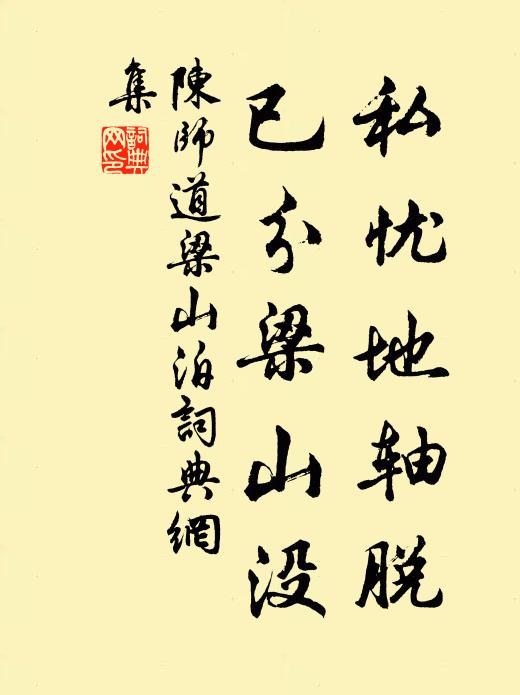 私忧地轴脱
已分梁山没
陳師道梁山泊詞典網
集
詞典网印